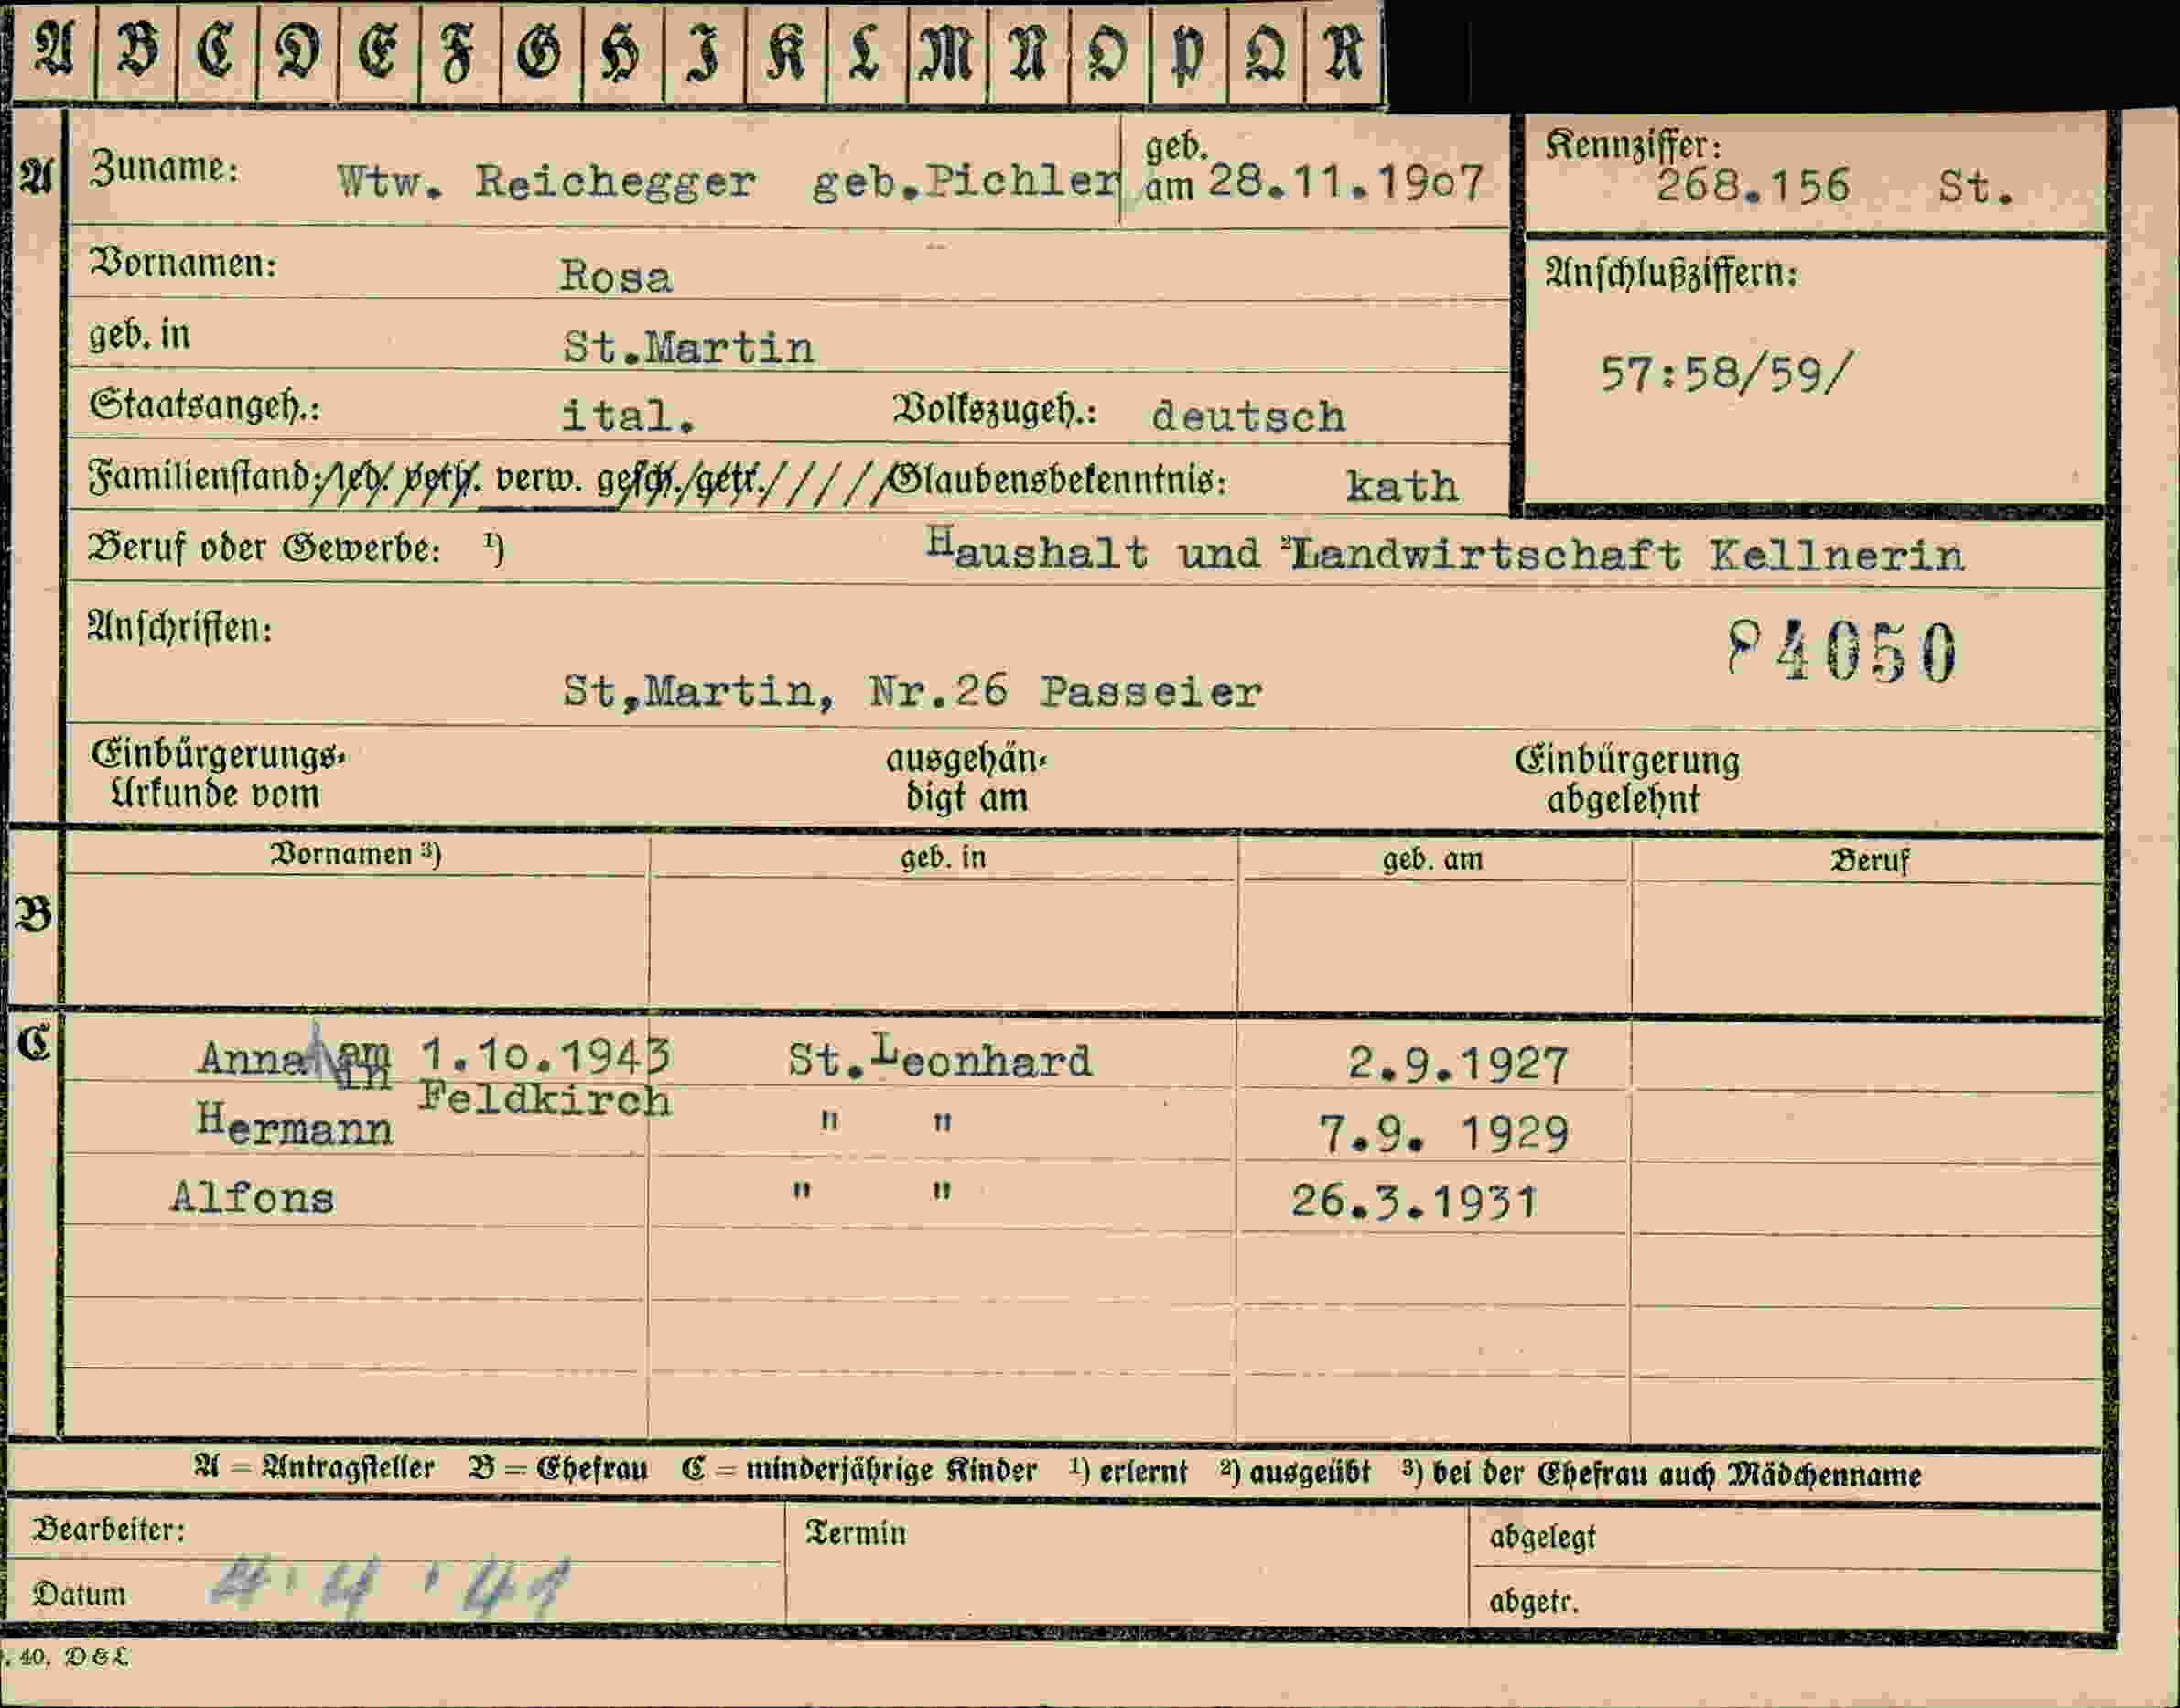 A B C D E F G H I K L M N O P Q R
A Zuname: Wtw. Reichegger geb.Pichler geb. am 28.11.19o7
Kennziffer: 268.156 St.
Vornamen: Rosa
Anschlußziffern:
geb. in St.Martin
57:58/59/
Staatsangeh.: ital. Volkszugeh.: deutsch
Familienstand: led. verh. verw. gesch./getr./////Glaubensbekenntnis: kath
Beruf oder Gewerbe: ¹) Haushalt und ²Landwirtschaft Kellnerin
Anschriften:
P4050
St,Martin, Nr.26 Passeier
Einbürgerungs- ausgehän- Einbürgerung
Urkunde vom digt am abgelehnt
Vornamen ³) geb. in geb. am Beruf
B
C Anna am 1.10.1943 St.Leonhard 2.9.1927
in Feldkirch
Hermann " " 7.9. 1929
Alfons " " 26.3.1931
A = Antragsteller B = Ehefrau C = minderjährige Kinder ¹) erlernt ²) ausgeübt ³) bei der Ehefrau auch Mädchenname
Bearbeiter: Termin abgelegt
Datum 4.4.41 abgetr.
. 40. D&L